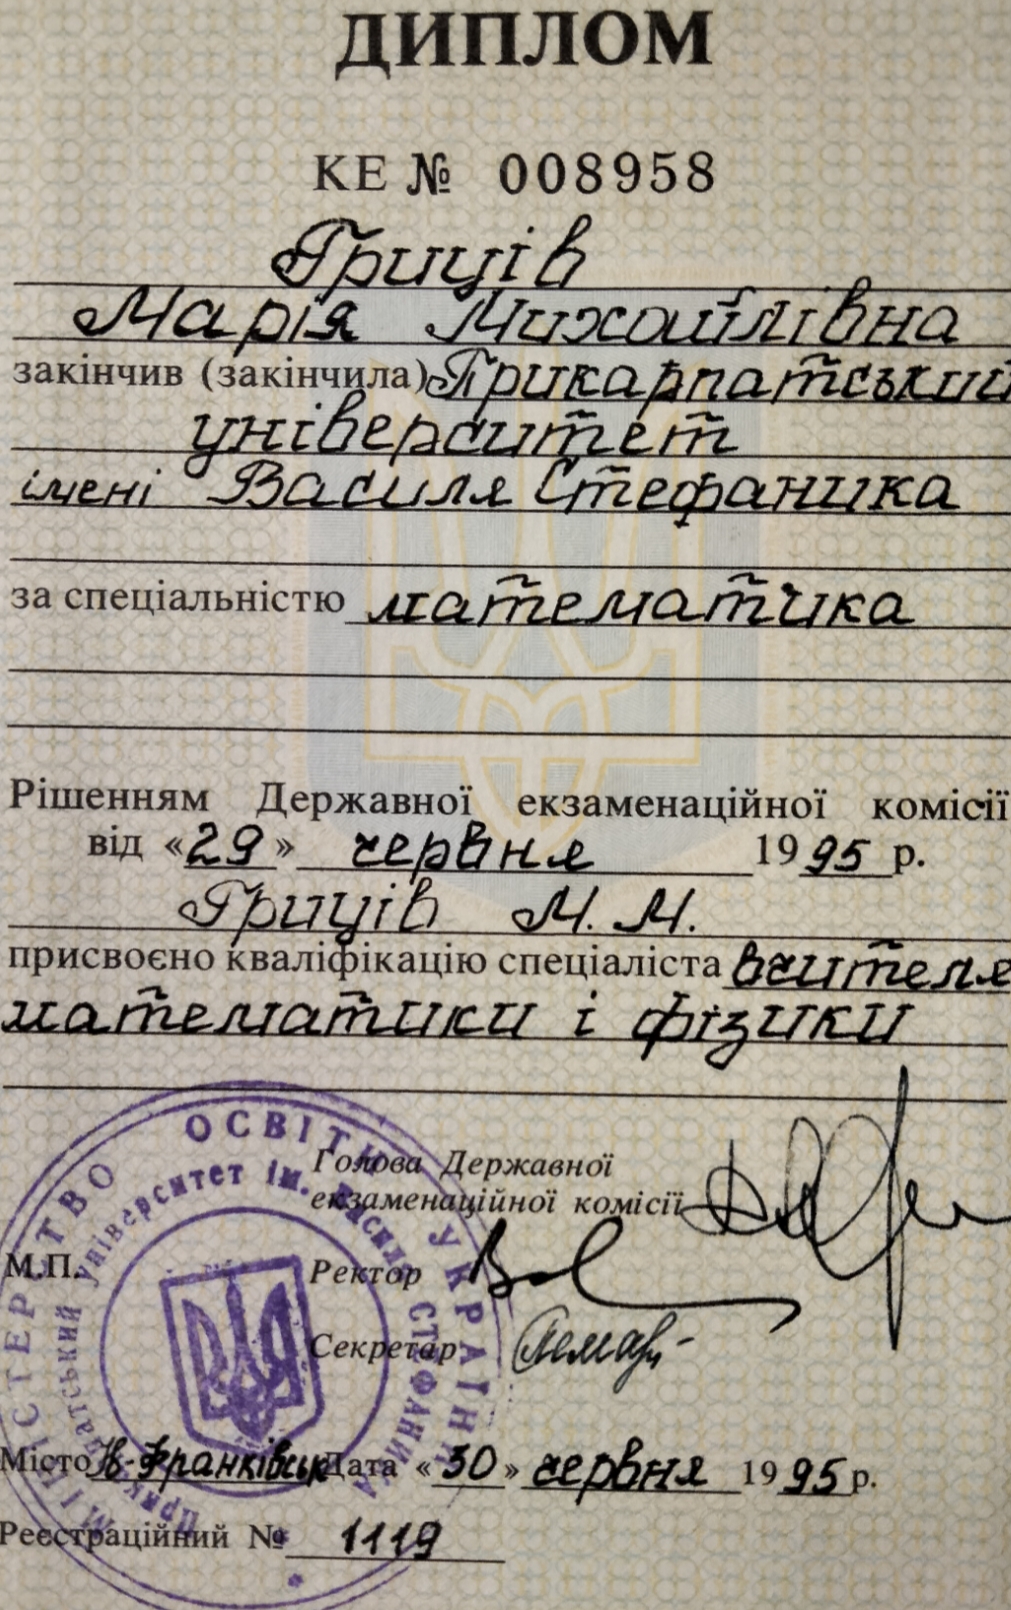 ДИПЛОМ
КЕ № 008958
Гриців
Марія Михайлівна
закінчив (закінчила) Прикарпатський
університет
імені Василя Стефаника
за спеціальністю математика
Рішенням Державної екзаменаційної комісії
від «29» червня 1995 р.
Гриців М. М.
присвоєно кваліфікацію спеціаліста вчителя
математики і фізики
Голова Державної
екзаменаційної комісії
М.П.
Ректор
Секретар
Місто Ів-Франківськ Дата «30» червня 1995 р.
Реєстраційний № 1119
МІНІСТЕРСТВО ОСВІТИ УКРАЇНИ
Прикарпатський університет ім. Василя Стефаника